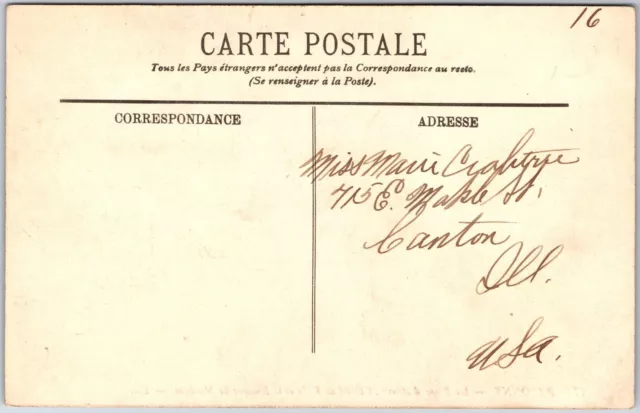 16
CARTE POSTALE
Tous les Pays étrangers n'acceptent pas la Correspondance au recto.
(Se renseigner à la Poste).
CORRESPONDANCE
ADRESSE
Miss Marie Crabtree
715 E. Maple St.
Canton
Ill.
USA.